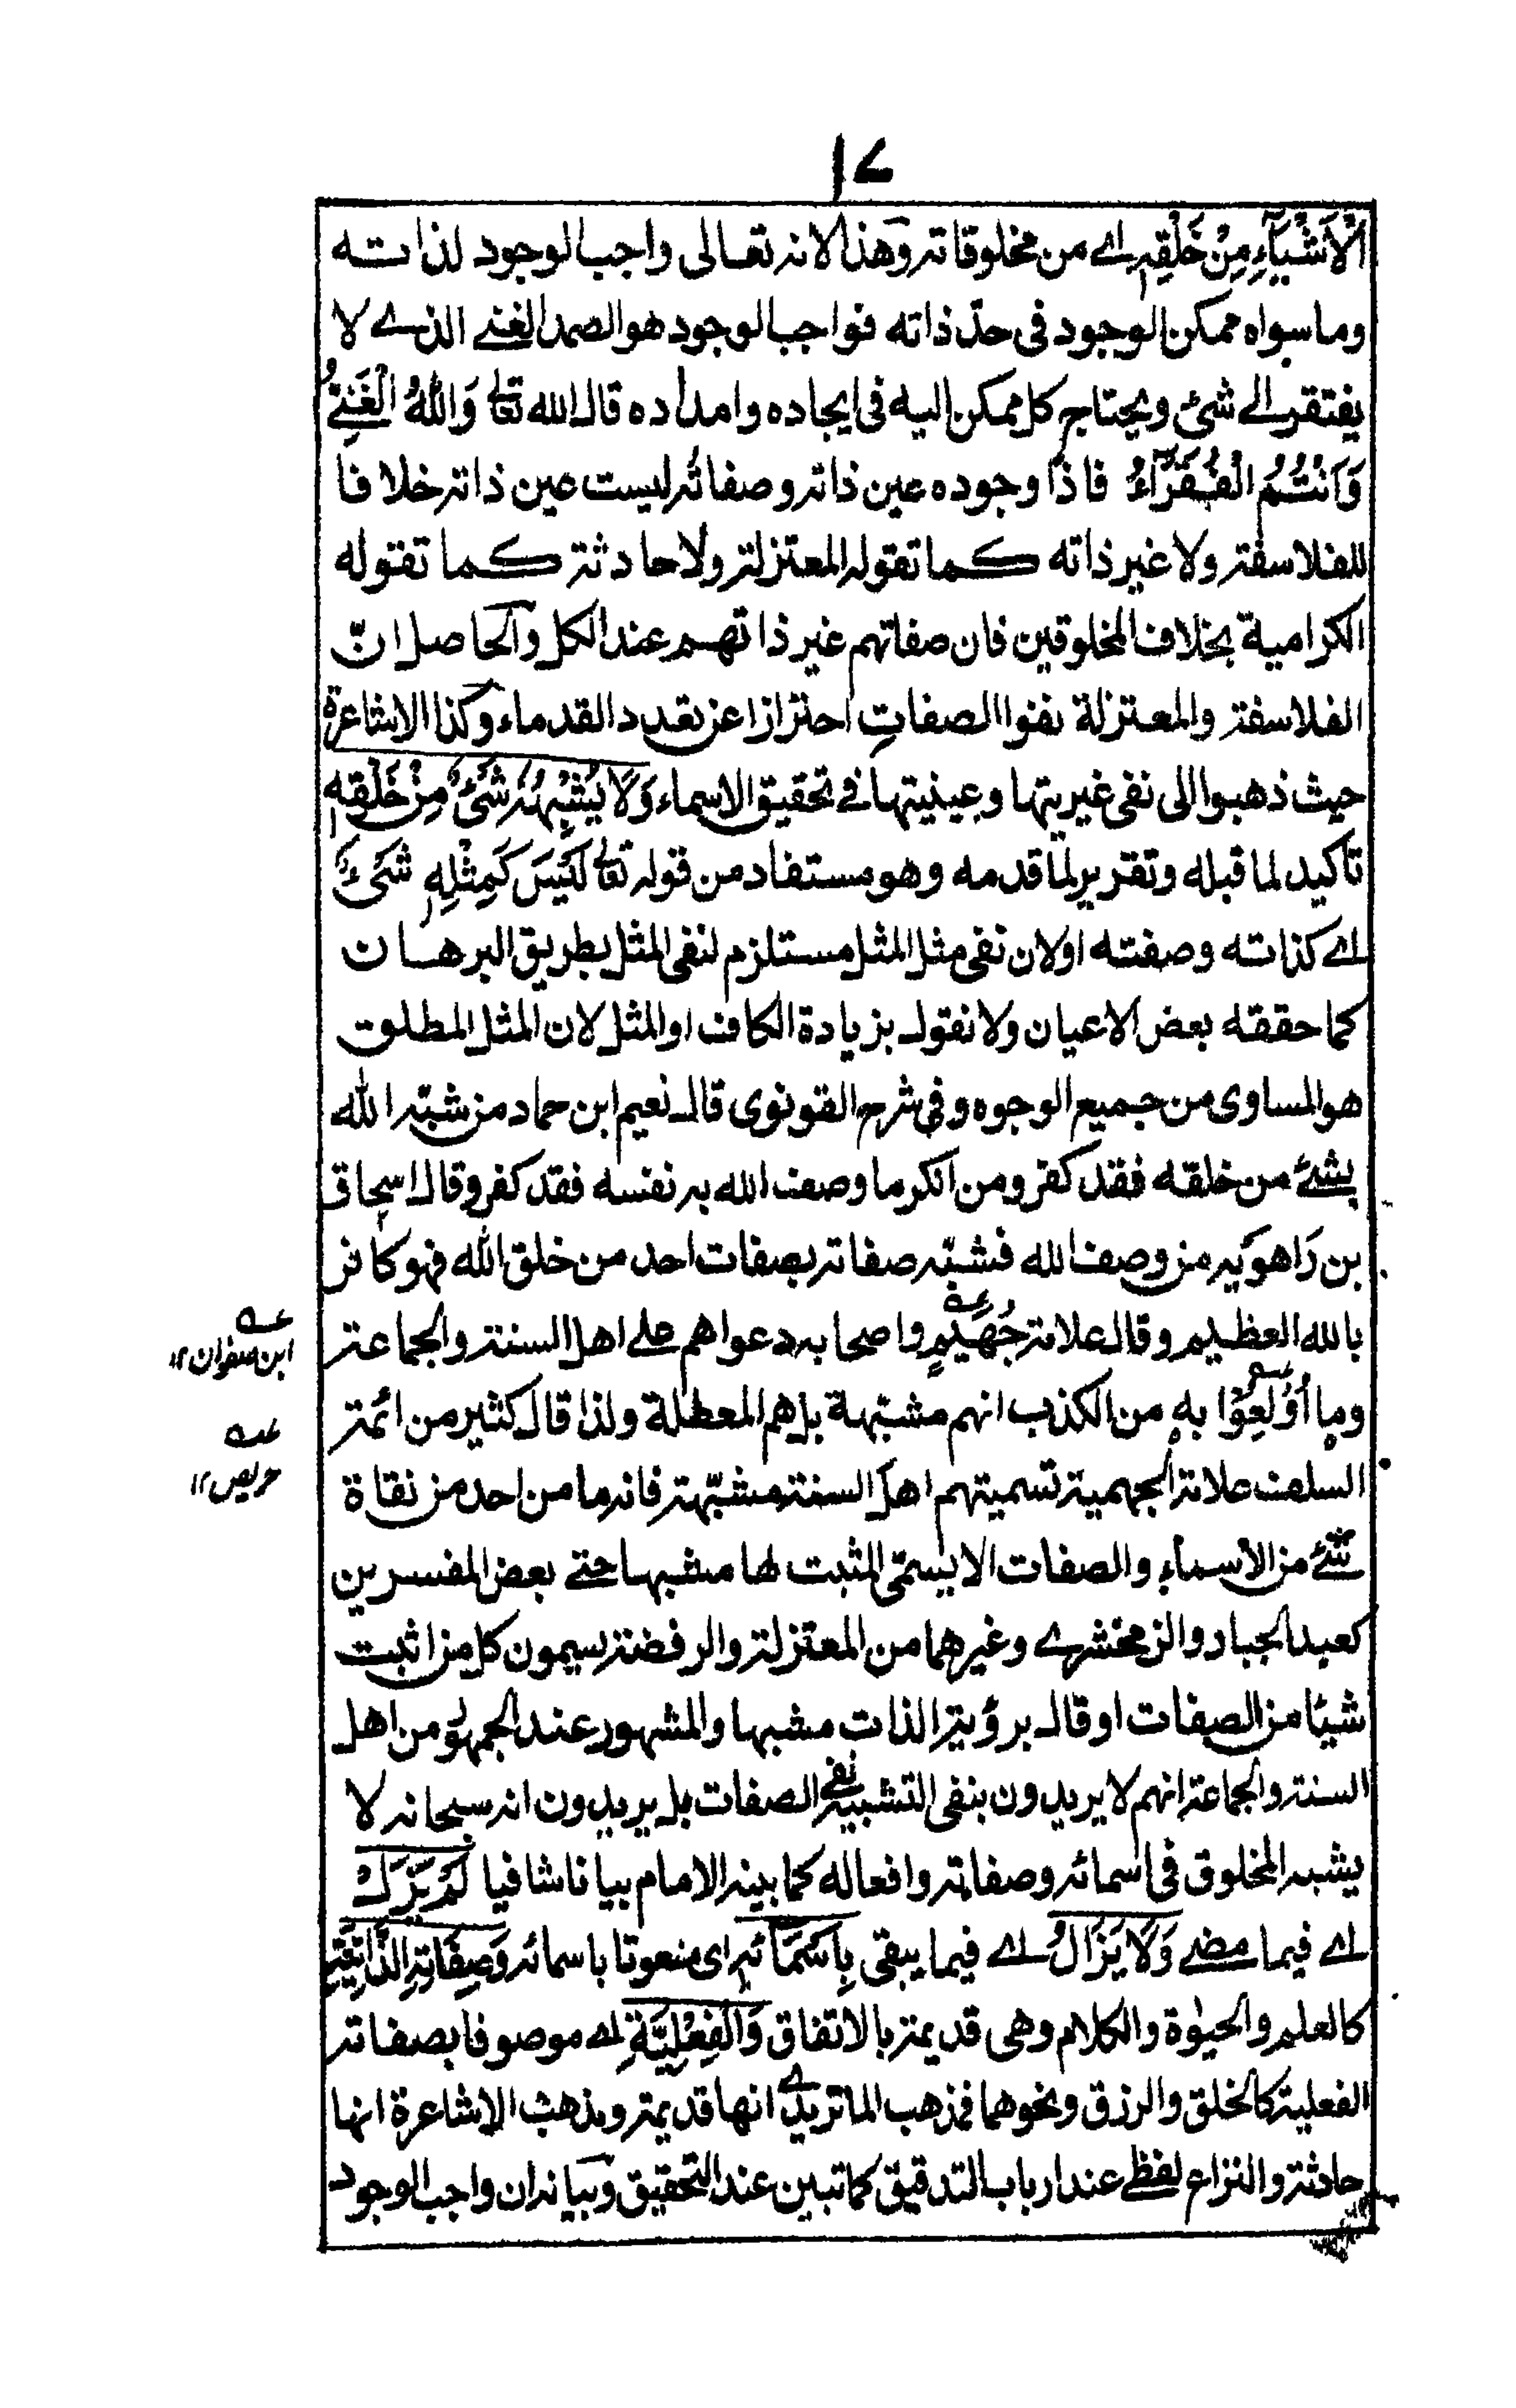 ١٧
الْاَشْيَآءِ مِنْ خَلْقِهٖ اے من مخلوقاته وهذا لانه تعالى واجب الوجود لذاته
وما سواه ممكن الوجود فى حدّ ذاته فواجب الوجود هو الصمد الغنے الذے لا
يفتقر الے شئ ويحتاج كل ممكن اليه فى ايجاده وامداده قال الله تعالٰى وَاللهُ الْغَنِےُّ
وَاَنْتُمُ الْفُقَرَآءُ فاذًا وجوده عين ذاته وصفاته ليست عين ذاته خلافا
للفلاسفة ولا غير ذاته كما تقوله المعتزلة ولا حادثة كما تقوله
الكرامية بخلاف المخلوقين فان صفاتهم غير ذاتهم عند الكل والحاصل انّ
الفلاسفة والمعتزلة نفوا الصفاتِ احترازا عن تعدد القدماء وكذا الاشاعرة
حيث ذهبوا الى نفى غيريتها وعينيتها فے تحقيق الاسماء وَلَا يُشْبِهُهٗ شَئٌ مِنْ خَلْقِهٖ
تاكيد لما قبله وتقرير لما قدمه وهو مستفاد من قوله تعالٰى لَيْسَ كَمِثْلِهٖ شَئٌ
اے كذاته وصفته اولان نفى مثل المثل مستلزم لنفى المثل بطريق البرهان
كما حققه بعض الاعيان ولا نقول بزيادة الكاف او المثل لان المثل المطلق
هو المساوى من جميع الوجوه وفى شرح القونوى قال نعيم ابن حماد من شبّه الله
بشئ من خلقه فقد كفر ومن انكر ما وصف الله به نفسه فقد كفر وقال اسحاق
بن رَاهويَه من وصف الله فشبّه صفاته بصفات احد من خلق الله فهو كافر
بالله العظيم وقال علامة جُهَيْمٍ واصحابه دعواهم على اهل السنة والجماعة
وما اُوْلِعُوْا بهٖ من الكذب انهم مشبّهة بل هم المعطلة ولذا قال كثير من ائمة
السلف علامة الجهمية تسميتهم اهل السنة مشبّهة فانه ما من احد من نفاة
شئ من الاسماء والصفات الا يسمّى المثبت لها مشبها حتے بعض المفسرين
كعبد الجبار والزمخشرے وغيرهما من المعتزلة والرفضة يسيمون كل من اثبت
شيئا من الصفات او قال برؤية الذات مشبها والمشهور عند الجمهور من اهل
السنة والجماعة انهم لا يريدون بنفى التشبيه نفى الصفات بل يريدون انه سبحانه لا
يشبه المخلوق فى اسمائه وصفاته وافعاله كما بينه الامام بيانا شافيا لَمْ يَزَلْ
اے فيما مضے وَلَا يَزَالُ اے فيما يبقى بِاَسْمَآئِهٖ اى منعوتا باسمائه وَصِفَاتِهِ الذَّاتِيَّةِ
كالعلم والحيٰوة والكلام وهى قديمة بالاتفاق وَالْفِعْلِيَّةِ اے موصوفا بصفاته
الفعلية كالخلق والرزق ونحوهما فمذهب الماتريدے انها قديمة ومذهب الاشاعرة انها
حادثة والنزاع لفظے عند ارباب التدقيق كما تبين عند التحقيق وبيانه ان واجب الوجود
عــه
ابن صفوان ١٢
عــه
حريص ١٢